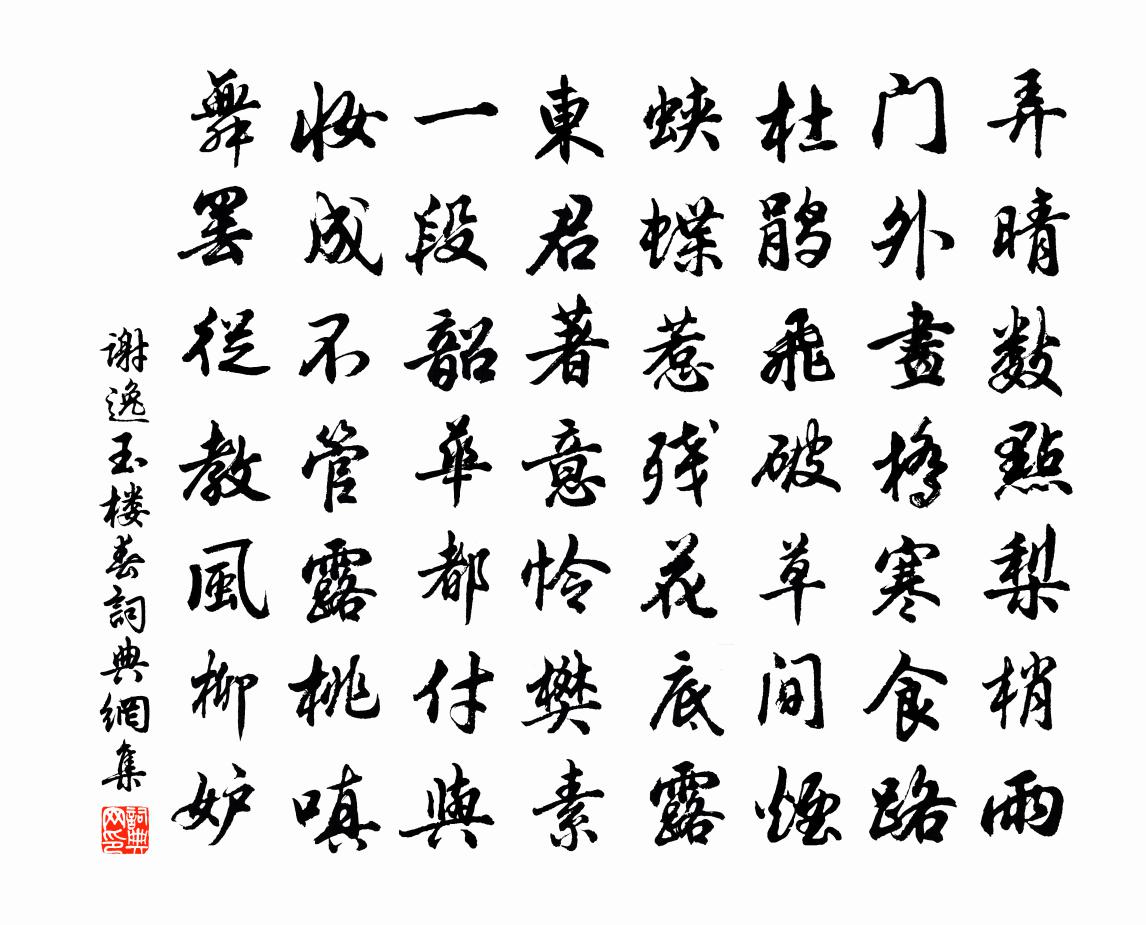 弄晴数點梨梢雨
门外畫橋寒食路
杜鹃飛破草间煙
蛱蝶惹残花底露
東君著意怜樊素
一段韶華都付與
妝成不管露桃嗔
舞罢從教風柳妒
谢逸玉楼春詞典網集
詞典网印